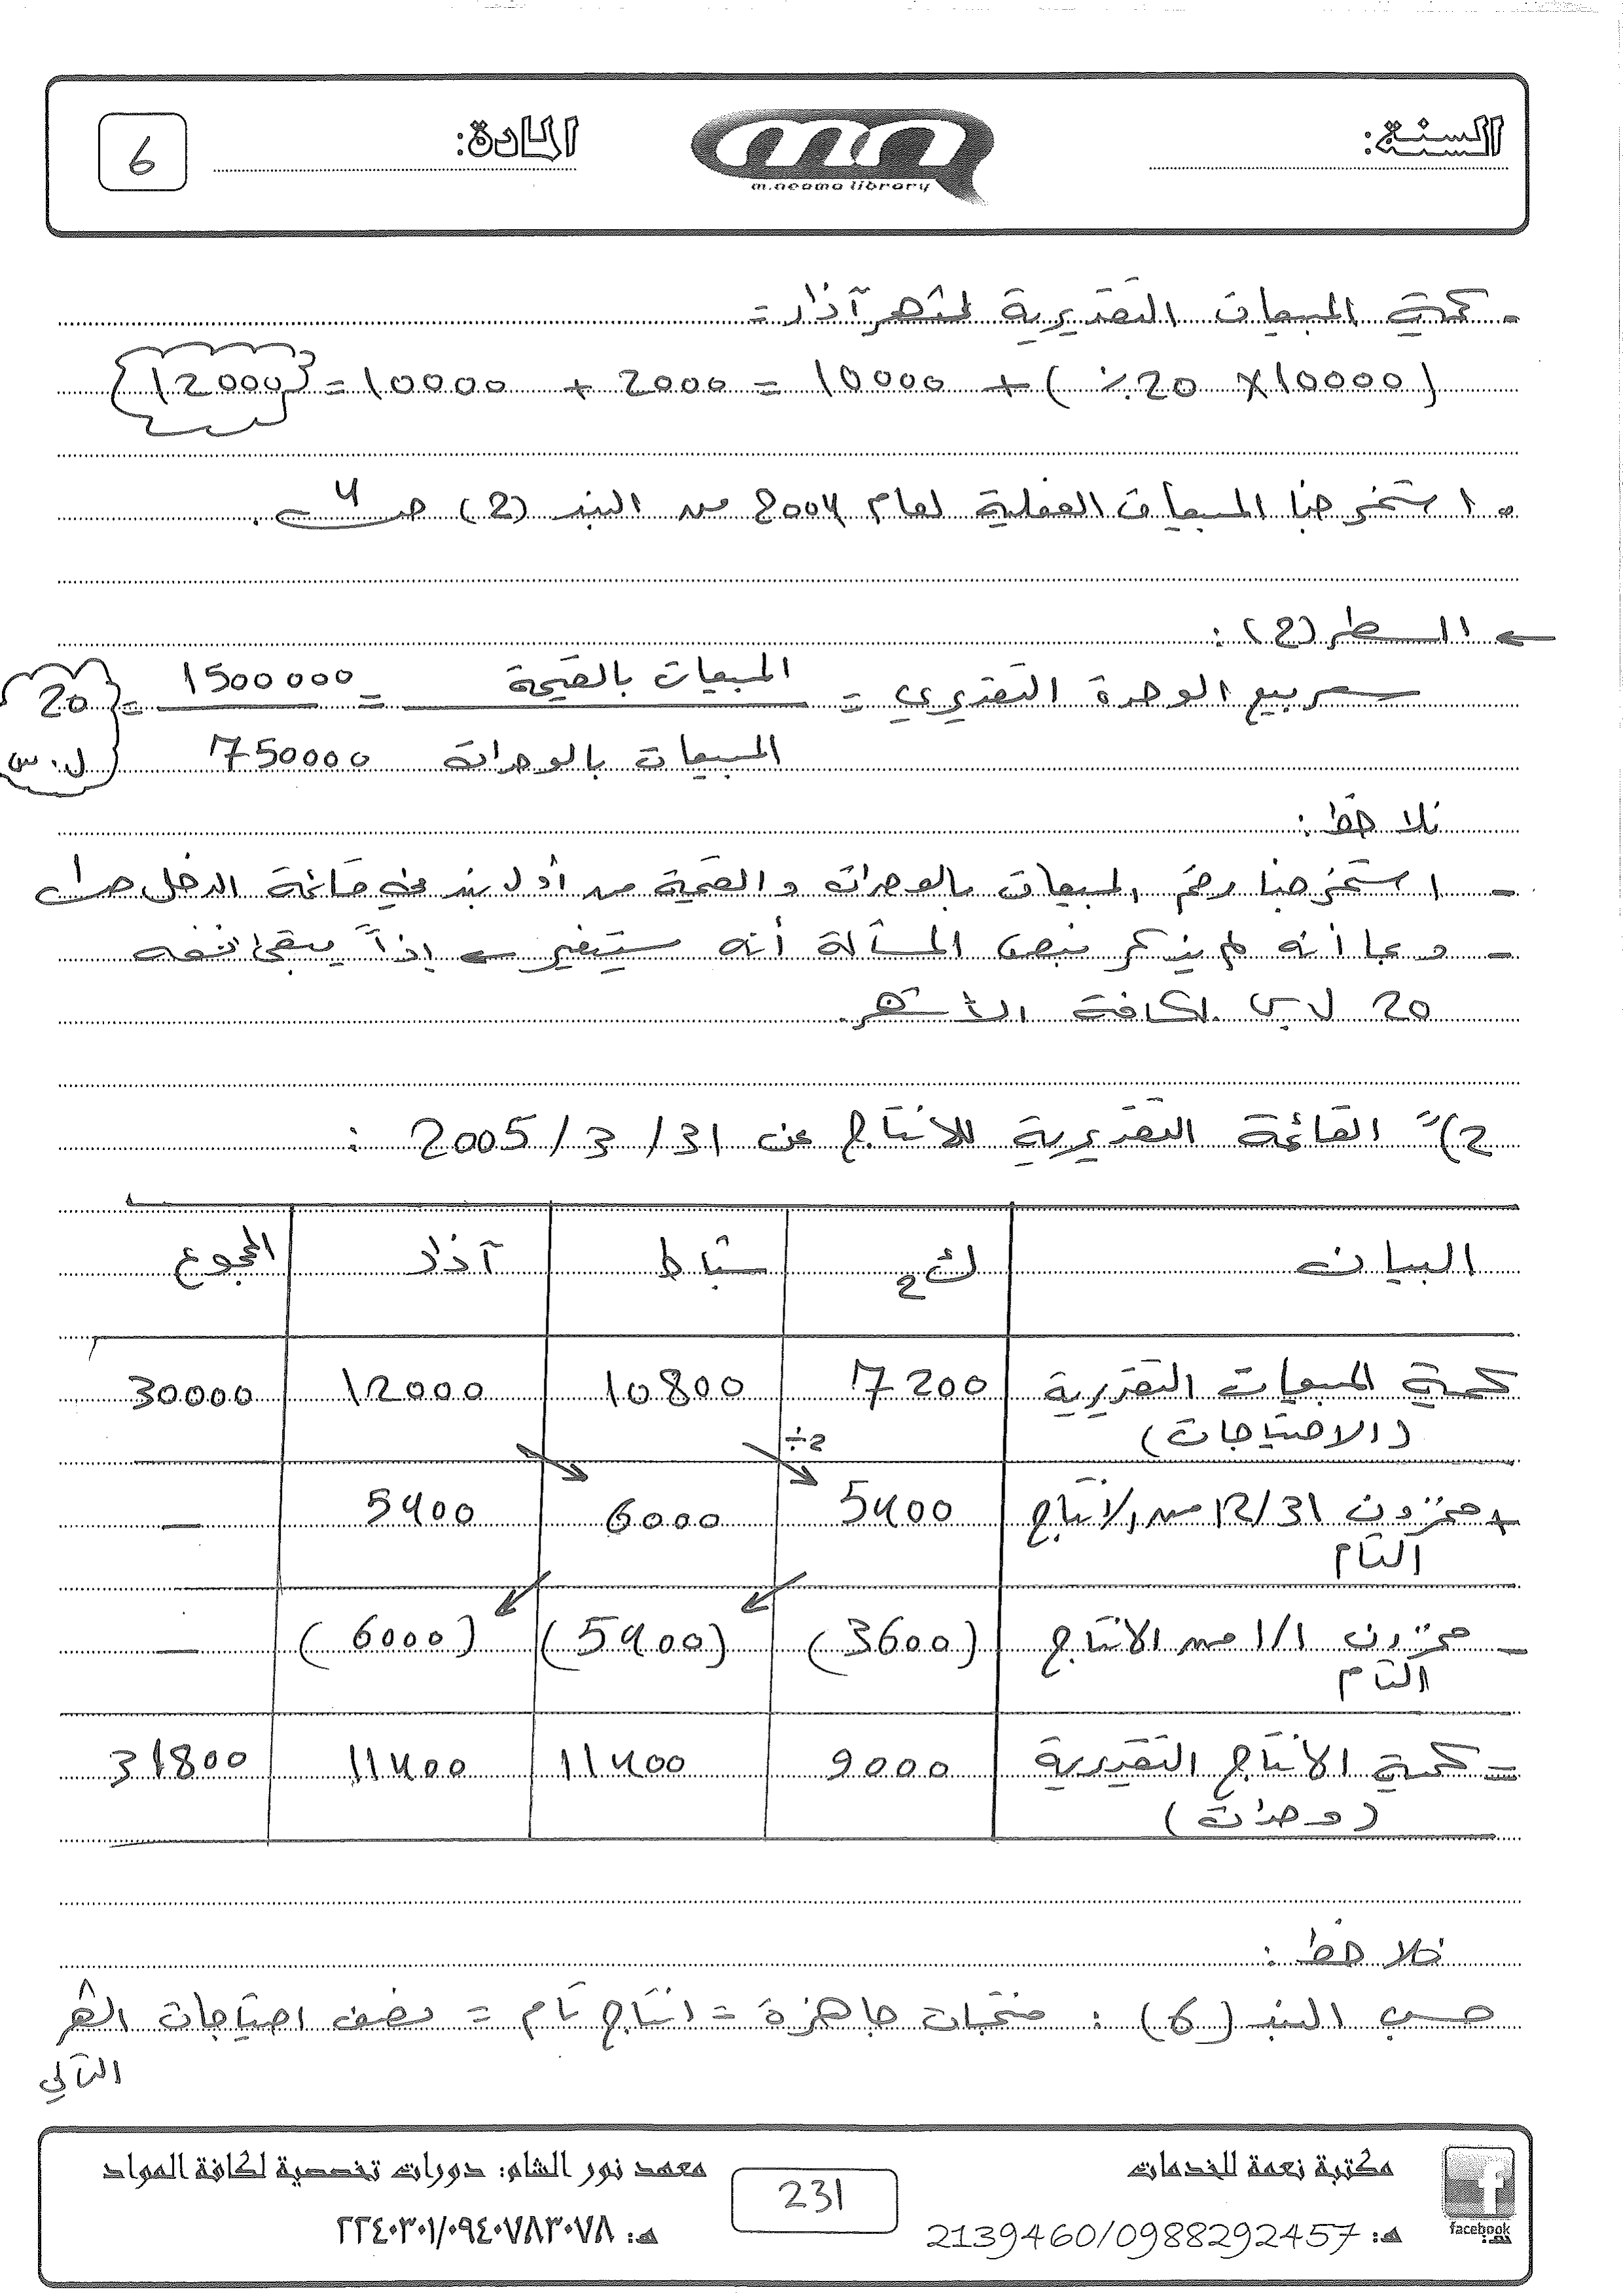 السنة:
المادة:
6
m.neama library
- كمية المبيعات التقديرية لشهر آذار =
(10000 × 20٪) + 10000 = 2000 + 10000 = 12000
• استخرجنا المبيعات الفعلية لعام 2004 من البند (2) ص4.
← السطر (2):
سعر بيع الوحدة التقديري = المبيعات بالقيمة / المبيعات بالوحدات = 1500000 / 750000 = 20 ل.س
نلاحظ:
- استخرجنا رقم المبيعات بالوحدات والقيمة من أول بند في قائمة الدخل ص1
- وبما أنه لم يذكر بنص المسألة أنه سيتغير ← إذاً يبقى نفسه
20 ل.س لكافة الأشهر.
2)" القائمة التقديرية للانتاج عن 31 / 3 / 2005 :
البيان ك2 شباط آذار المجموع
كمية المبيعات التقديرية 7200 10800 12000 30000
(الاحتياجات)
÷2
+ مخزون 12/31 من الانتاج 5400 6000 5400 —
التام
- مخزون 1/1 من الانتاج (3600) (5400) (6000) —
التام
= كمية الانتاج التقديرية 9000 11400 11400 31800
(وحدات)
نلاحظ :
حسب البند (6) : منتجات جاهزة = انتاج تام = نصف احتياجات الشهر
التالي
مكتبة نعمة للخدمات
معهد نور الشام: دورات تخصصية لكافة المواد
231
هـ: 2139460/0988292457
هـ: ٢٢٤٠٣٠١/٠٩٤٠٧٨٣٠٧٨
facebook